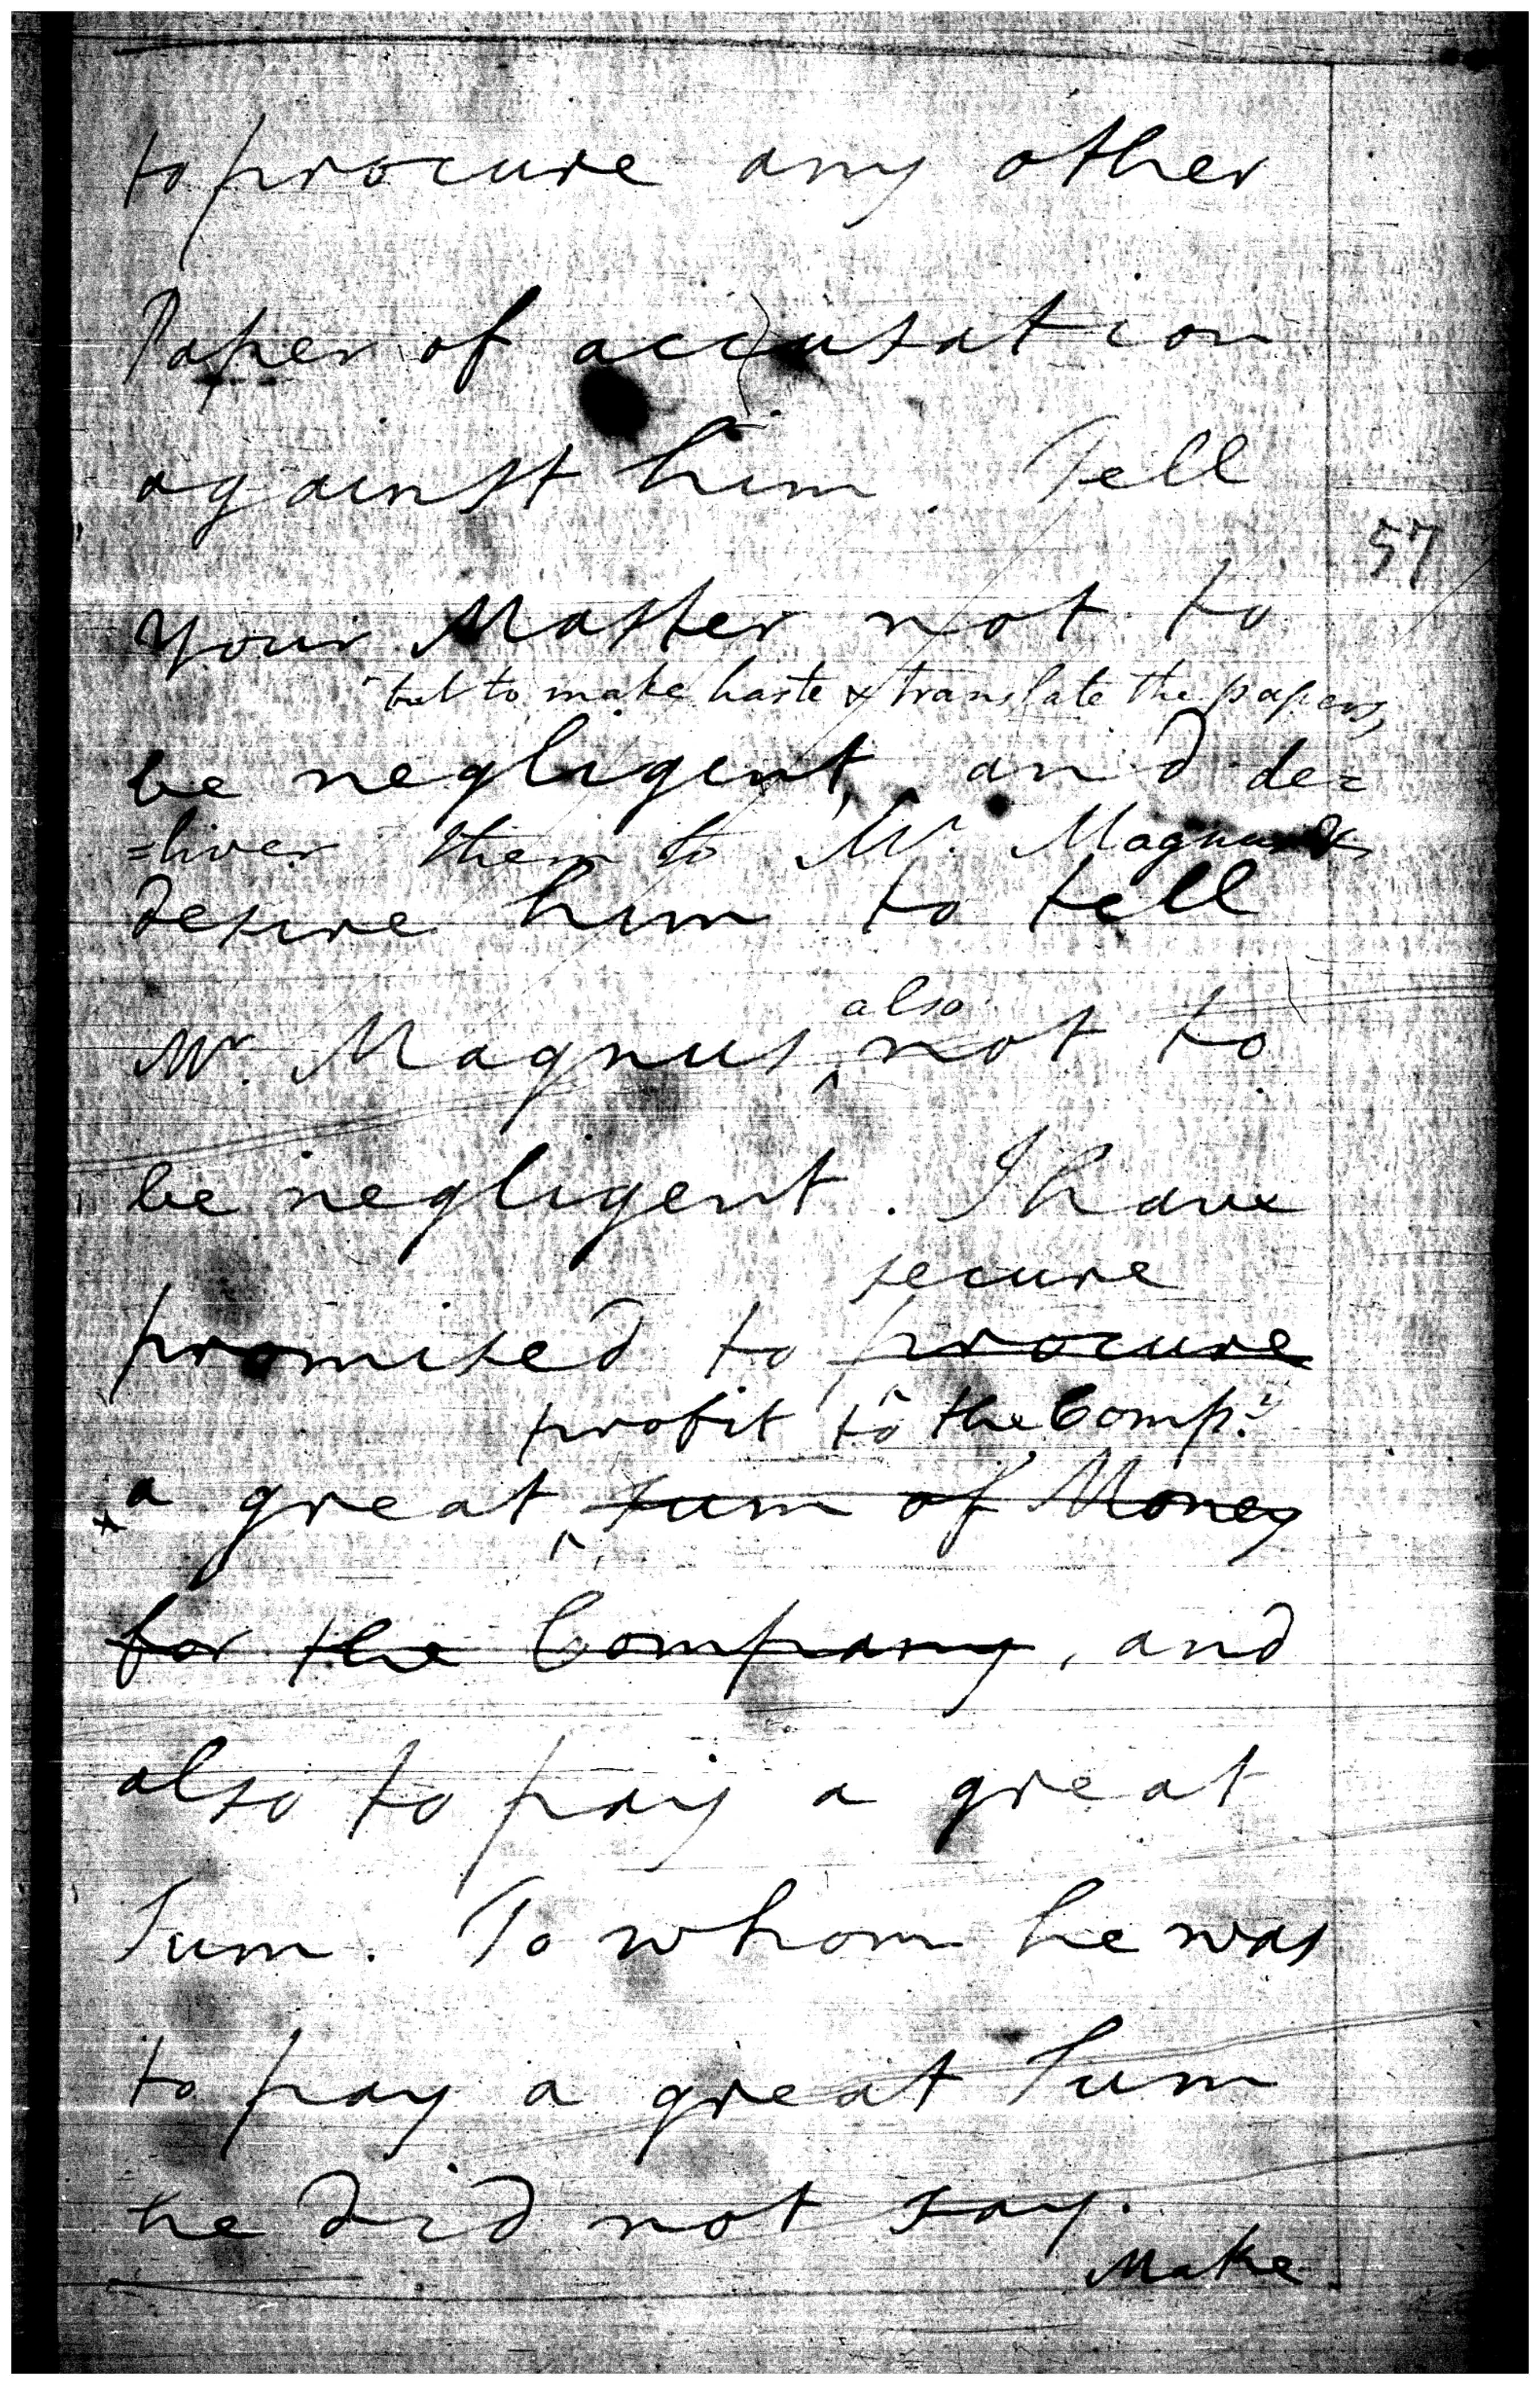 to procure any other
Paper of accusation
against him. Tell
57
your Master not to
but to make haste & translate the papers,
be negligent, and de=
=liver them to Mr. Magnus &
desire him to tell
also
Mr. Magnus not to
be negligent. I have
secure
promised to procure
profit to the Compy.
a great sum of Money
for the Company, and
also to pay a great
Sum. To whom he was
to pay a great Sum
he did not say.
Make